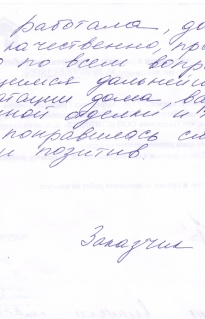 работала, до
качественно, про
о по всем вопр
щимся дальней
атации дома, ва
ной отделки и т
понравилась сл
и позитив.
Заказчик